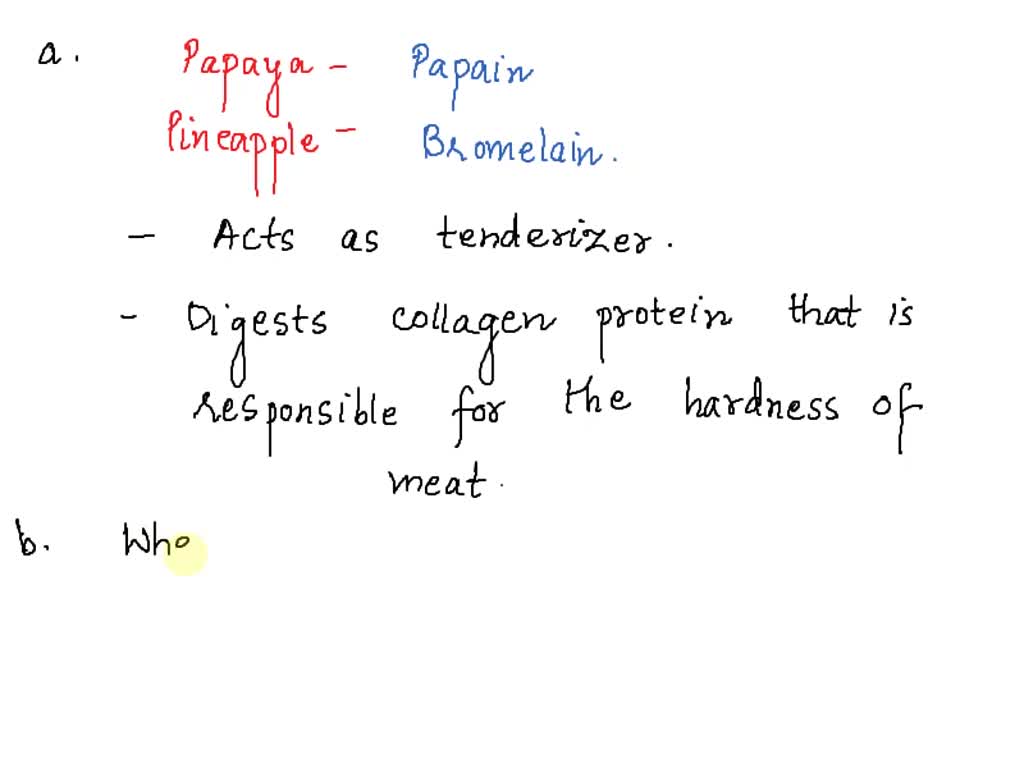 a. Papaya - Papain
Pineapple - Bromelain.
- Acts as tenderizer.
- Digests collagen protein that is
responsible for the hardness of
meat.
b. Who